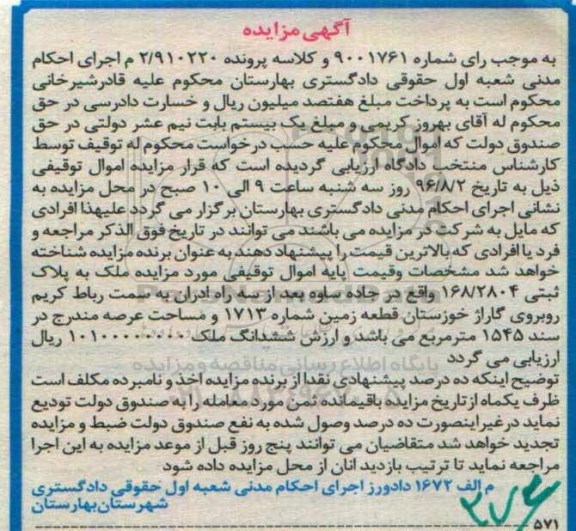 آگهی مزایده
به موجب رای شماره ۹۰۰۱۷۶۱ و کلاسه پرونده ۲/۹۱۰۲۲۰ م اجرای احکام
مدنی شعبه اول حقوقی دادگستری بهارستان محکوم علیه قادرشیرخانی
محکوم است به پرداخت مبلغ هفتصد میلیون ریال و خسارت دادرسی در حق
محکوم له آقای بهروز کریمی و مبلغ یک بیستم بابت نیم عشر دولتی در حق
صندوق دولت که اموال محکوم علیه حسب درخواست محکوم له توقیف توسط
کارشناس منتخب دادگاه ارزیابی گردیده است که قرار مزایده اموال توقیفی
ذیل به تاریخ ۹۶/۸/۲ روز سه شنبه ساعت ۹ الی ۱۰ صبح در محل مزایده به
نشانی اجرای احکام مدنی دادگستری بهارستان برگزار می گردد علیهذا افرادی
که مایل به شرکت در مزایده می باشند می توانند در تاریخ فوق الذکر مراجعه و
فرد یا افرادی که بالاترین قیمت را پیشنهاد دهند به عنوان برنده مزایده شناخته
خواهد شد مشخصات وقیمت پایه اموال توقیفی مورد مزایده ملک به پلاک
ثبتی ۱۶۸/۲۸۰۴ واقع در جاده ساوه بعد از سه راه آدران به سمت رباط کریم
روبروی گاراژ خوزستان قطعه زمین شماره ۱۷۱۳ و مساحت عرصه مندرج در
سند ۱۵۴۵ مترمربع می باشد و ارزش ششدانگ ملک ریال
ارزیابی می گردد
توضیح اینکه ده درصد پیشنهادی نقدا از برنده مزایده اخذ و نامبرده مکلف است
ظرف یکماه از تاریخ مزایده باقیمانده ثمن مورد معامله را به صندوق دولت تودیع
نماید در غیر اینصورت ده درصد وصول شده به نفع صندوق دولت ضبط و مزایده
تجدید خواهد شد متقاضیان می توانند پنج روز قبل از موعد مزایده به این اجرا
مراجعه نماید تا ترتیب بازدید آنان از محل مزایده داده شود
م الف ۱۶۷۲ دادورز اجرای احکام مدنی شعبه اول حقوقی دادگستری
شهرستان بهارستان
۵۷۱